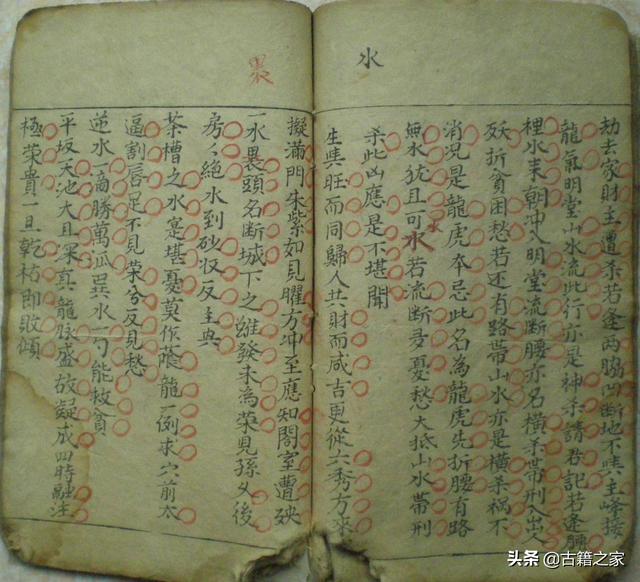 水
劫去家財主遭杀若逢两脇凹断地不主峰接
龍氣明堂山水流此行亦是神杀請君記若逢
裡水来朝冲入明堂流断腰亦名横杀带刑入出人
殀折貧困愁若还有路带山水亦是横杀祸不
消况是龍虎本忌此名為龍虎先折腰有路
無水犹且可水若流断君憂愁大抵山水帶刑
杀此凶應是不堪聞
生旺而同歸人共財而咸吉更從六秀方來
裹
擬滿門朱紫如見曜方冲至應知閤室遭殃
一水裹頭名断城下之雖發未為荣見孫久後
房々絶水到砂收反主興
茶槽之水寔堪憂莫作蔭龍一例求穴前太
逼割唇足不見荣兮反見愁
逆水一滴勝萬瓜巽水一勺能救貧
平坂天池大且深真龍脉盛故凝成四時融注
極荣貴一旦乾祜即敗傾
头条@古籍之家